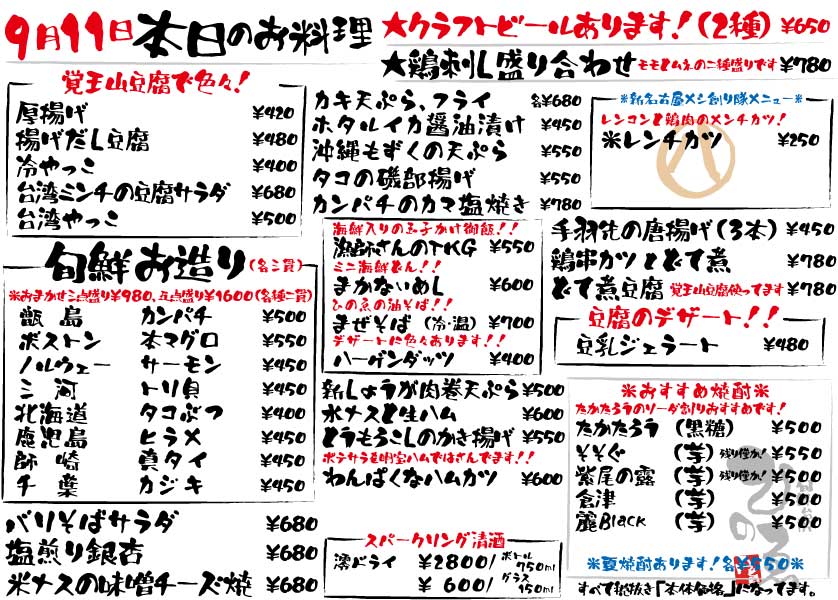 9月11日 本日のお料理
★クラフトビールあります!(2種) ¥650
★鶏刺し盛り合わせ モモとムネの二種盛りです ¥780
覚王山豆腐で色々!
厚揚げ ¥420
揚げだし豆腐 ¥480
冷やっこ ¥400
台湾ミンチの豆腐サラダ ¥680
台湾やっこ ¥500
カキ天ぷら、フライ 各¥680
ホタルイカ醤油漬け ¥450
沖縄もずくの天ぷら ¥550
タコの磯部揚げ ¥550
カンパチのカマ塩焼き ¥780
※新名古屋メシ創り隊メニュー※
レンコンと鶏肉のメンチカツ!
米レンチカツ ¥250
旬鮮お造り(各三貫)
※おまかせ三点盛り¥980、五点盛り¥1600(各種二貫)
甑島 カンパチ ¥500
ボストン 本マグロ ¥550
ノルウェー サーモン ¥450
三河 トリ貝 ¥450
北海道 タコぶつ ¥400
鹿児島 ヒラメ ¥450
師崎 真タイ ¥450
千葉 カジキ ¥450
海鮮入りの玉子かけ御飯!!
漁師さんのTKG ¥550
ミニ海鮮どん!!
まかないめし ¥600
ひの魚の油そば!!
まぜそば (冷・温) ¥700
デザートに色々あります!!
ハーゲンダッツ ¥400
手羽先の唐揚げ(3本) ¥450
鶏串カツとどて煮 ¥780
どて煮豆腐 覚王山豆腐使ってます ¥780
豆腐のデザート!!
豆乳ジェラート ¥480
新しょうが肉巻天ぷら ¥500
水ナスと生ハム ¥600
とうもろこしのかき揚げ ¥550
ポテサラを明宝ハムではさんでます!!
わんぱくなハムカツ ¥600
※おすすめ焼酎※
たかたろうのソーダ割りおすすめです!
たかたろう (黒糖) ¥500
そそぐ (芋) 残り僅か! ¥550
紫尾の露 (芋) 残り僅か! ¥500
倉津 (芋) ¥500
麗Black (芋) ¥500
※夏焼酎あります!各¥550※
バリそばサラダ ¥680
塩煎り銀杏 ¥680
米ナスの味噌チーズ焼 ¥680
スパークリング清酒
澪ドライ ¥2800/ボトル750ml
¥600/グラス150ml
すべて税抜き「本体価格」になってます。